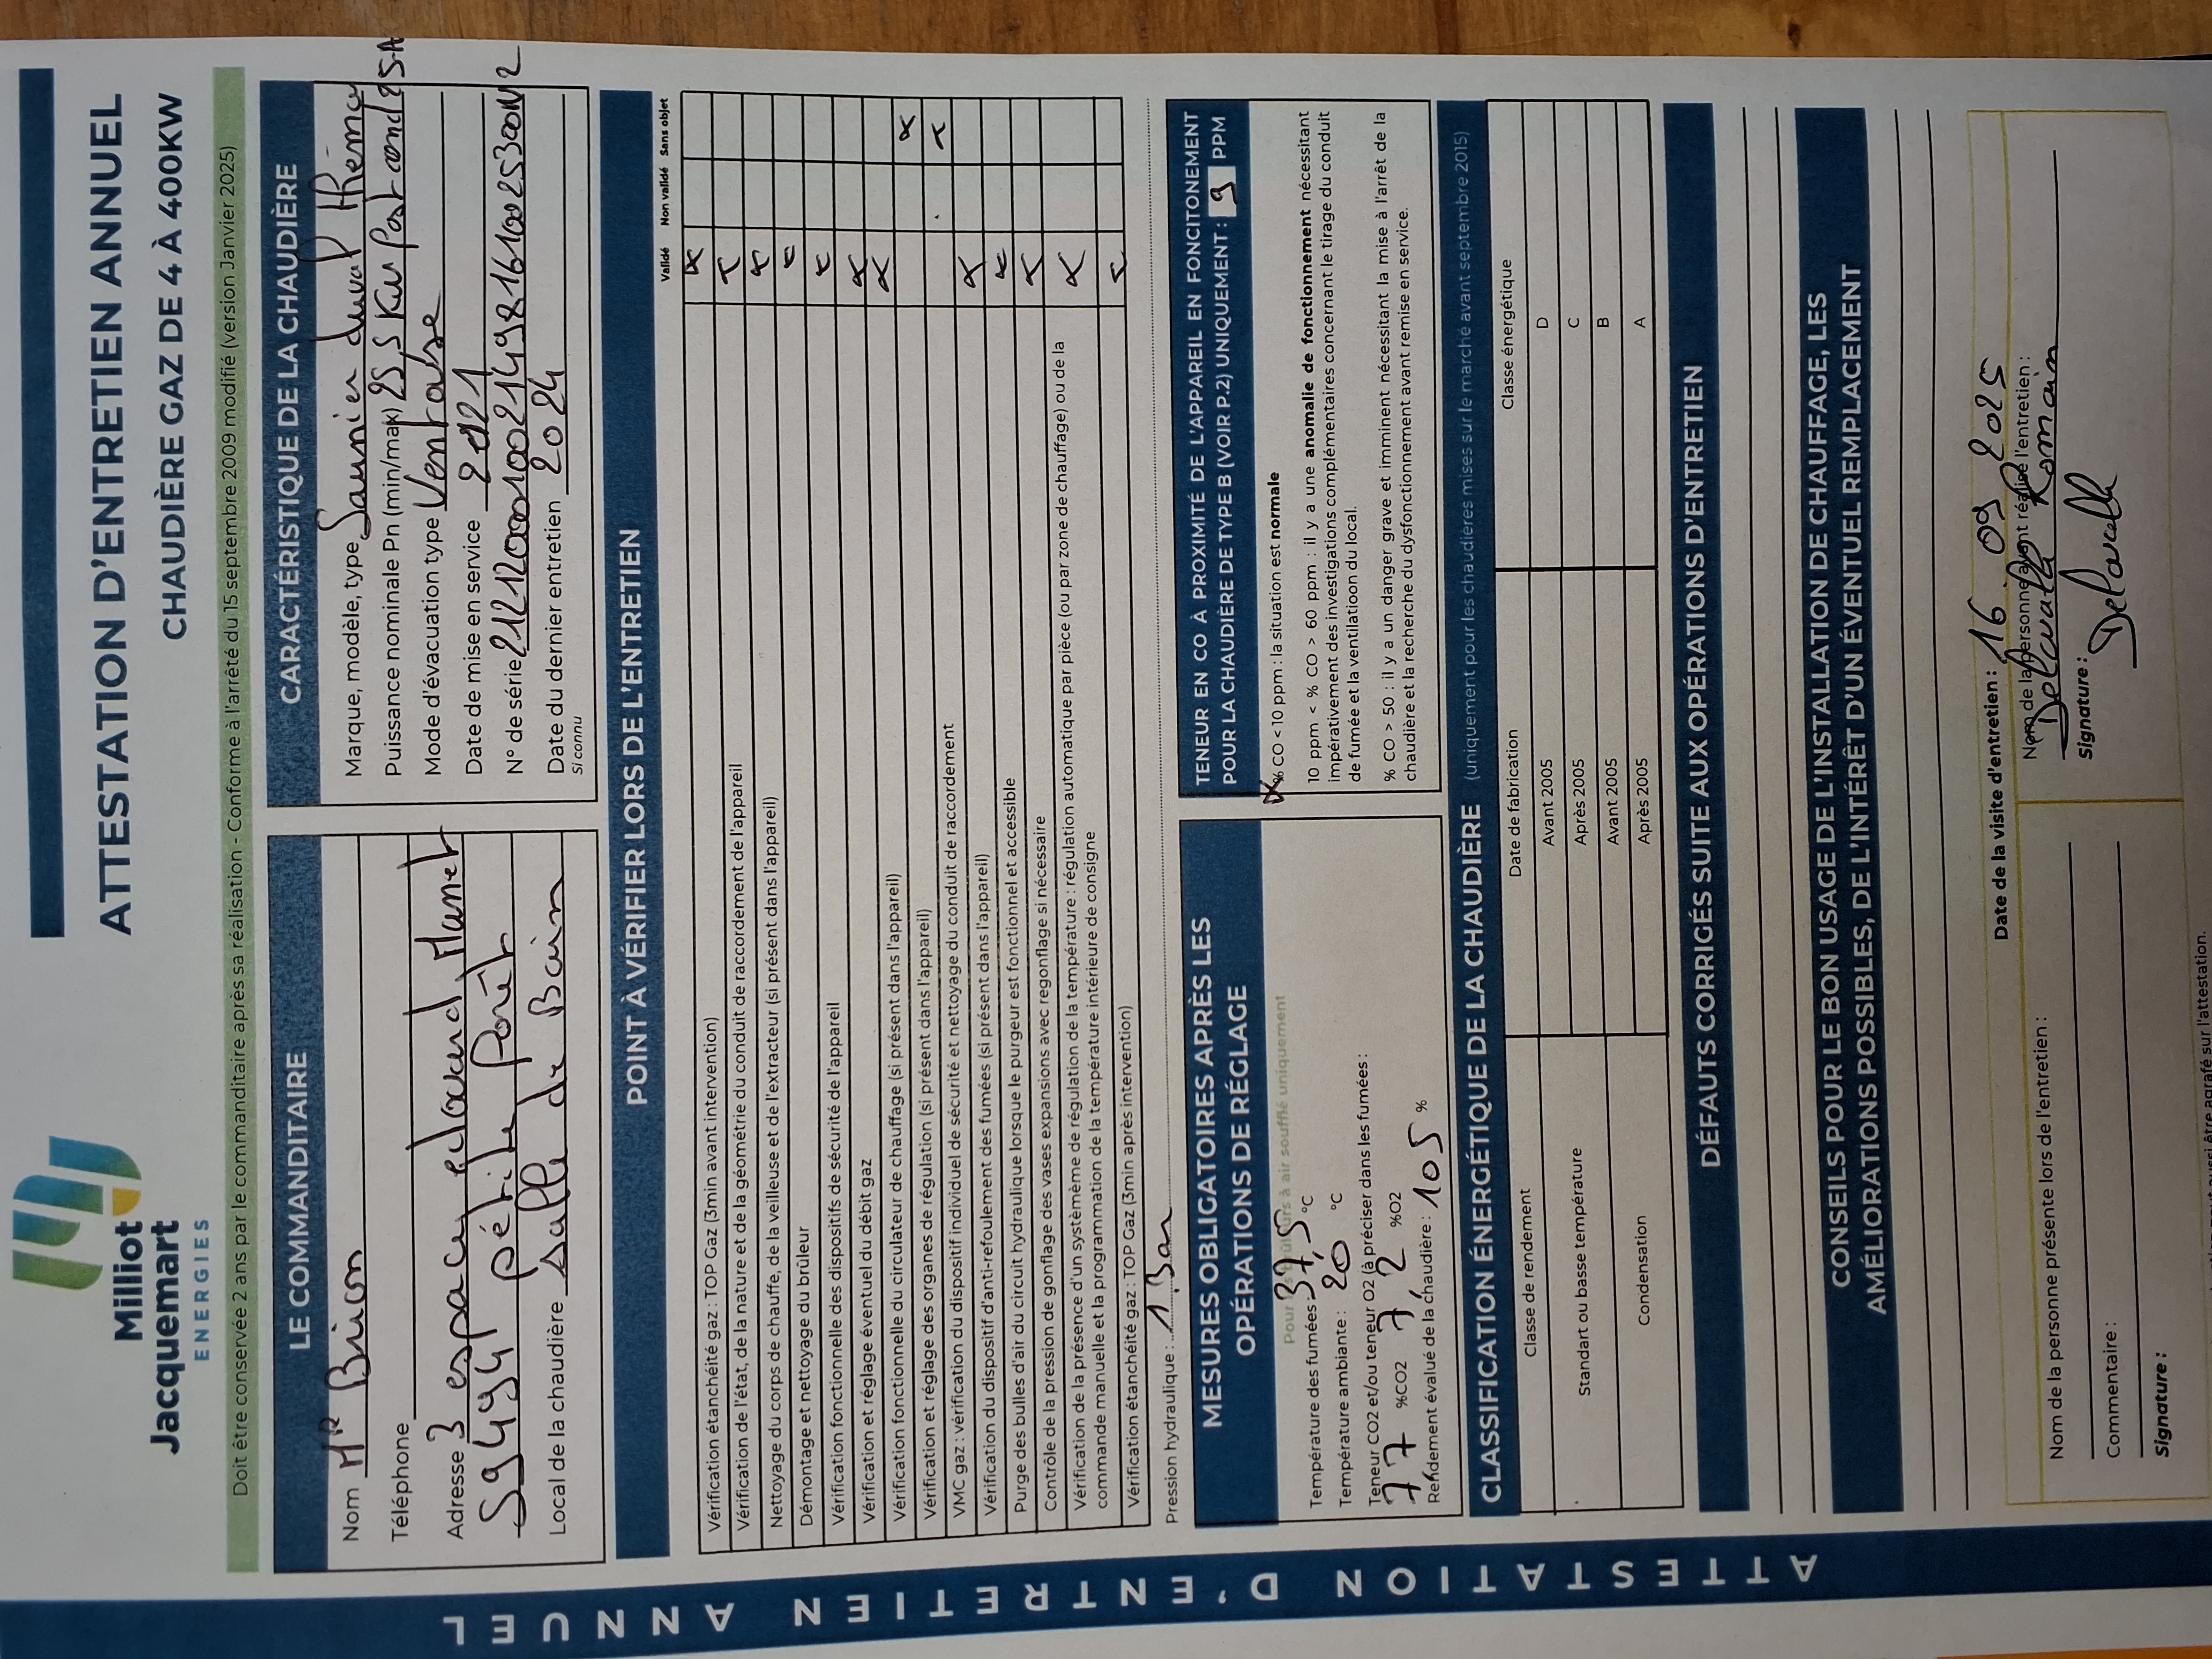 Milliot
Jacquemart
ENERGIES
ATTESTATION D'ENTRETIEN ANNUEL
CHAUDIÈRE GAZ DE 4 À 400KW
Doit être conservée 2 ans par le commanditaire après sa réalisation - Conforme à l'arrêté du 15 septembre 2009 modifié (version Janvier 2025)
LE COMMANDITAIRE
Nom Mr Brion
Téléphone
Adresse 3 espace edouard Manet
59494 pétite Forêt
Local de la chaudière Salle de Bain
CARACTÉRISTIQUE DE LA CHAUDIÈRE
Marque, modèle, type Saunier duval Thema
Puissance nominale Pn (min/max) 25,5 Kw Postcond 25-A
Mode d'évacuation type Ventouse
Date de mise en service 2021
N° de série
Date du dernier entretien 2024
si connu
POINT À VÉRIFIER LORS DE L'ENTRETIEN
Validé Non validé Sans objet
Vérification étanchéité gaz : TOP Gaz (3min avant intervention) x
Vérification de l'état, de nature et de la géométrie du conduit de raccordement de l'appareil x
Nettoyage du corps de chauffe, de la veilleuse et de l'extracteur (si présent dans l'appareil) x
Démontage et nettoyage du brûleur x
Vérification fonctionnelle des dispositifs de sécurité de l'appareil x
Vérification et réglage éventuel du débit gaz x
Vérification fonctionnelle du circulateur de chauffage (si présent dans l'appareil) x
Vérification et réglage des organes de régulation (si présent dans l'appareil) x
VMC gaz : vérification du dispositif individuel de sécurité et nettoyage du conduit de raccordement x
Vérification du dispositif d'anti-refoulement des fumées (si présent dans l'appareil) x
Purge des bulles d'air du circuit hydraulique lorsque le purgeur est fonctionnel et accessible x
Contrôle de la pression de gonflage des vases expansions avec regonflage si nécessaire x
Vérification de la présence d'un systèmème de régulation de la température : régulation automatique par pièce (ou par zone de chauffage) ou de la
commande manuelle et la programmation de la température intérieure de consigne x
Vérification étanchéité gaz : TOP Gaz (3min après intervention) x
Pression hydraulique : 1 Bar
MESURES OBLIGATOIRES APRÈS LES
OPÉRATIONS DE RÉGLAGE
Pour les brûleurs à air soufflé uniquement
Température des fumées : 37,5 °C
Température ambiante : 20 °C
Teneur CO2 et/ou teneur O2 (à préciser dans les fumées :
77 %CO2 7,2 %O2
Rendement évalué de la chaudière : 105 %
TENEUR EN CO À PROXIMITÉ DE L'APPAREIL EN FONCITONEMENT
POUR LA CHAUDIÈRE DE TYPE B (VOIR P.2) UNIQUEMENT : 9 PPM
x % CO < 10 ppm : la situation est normale
10 ppm < % CO > 60 ppm : il y a une anomalie de fonctionnement nécessitant
impérativement des investigations complémentaires concernant le tirage du conduit
de fumée et la ventilatioon du local.
% CO > 50 : il y a un danger grave et imminent nécessitant la mise à l'arrêt de la
chaudière et la recherche du dysfonctionnement avant remise en service.
CLASSIFICATION ÉNERGÉTIQUE DE LA CHAUDIÈRE (uniquement pour les chaudières mises sur le marché avant septembre 2015)
Classe de rendement Date de fabrication Classe énergétique
Standart ou basse température Avant 2005 D
Après 2005 C
Condensation Avant 2005 B
Après 2005 A
DÉFAUTS CORRIGÉS SUITE AUX OPÉRATIONS D'ENTRETIEN
CONSEILS POUR LE BON USAGE DE L'INSTALLATION DE CHAUFFAGE, LES
AMÉLIORATIONS POSSIBLES, DE L'INTÉRÊT D'UN ÉVENTUEL REMPLACEMENT
Date de la visite d'entretien : 16 09 2025
Nom de la personne présente lors de l'entretien :
Commentaire :
Signature :
Nom de la personne ayant réalisé l'entretien :
Romain
Signature :
ATTESTATION D'ENTRETIEN ANNUEL